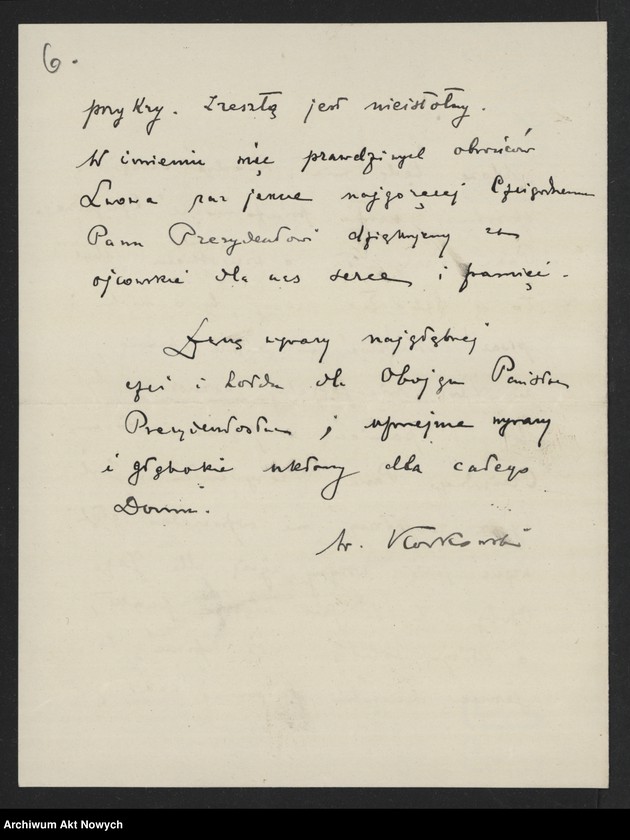 6.
przykry. Zresztą jest nieistotny.
W imieniu więc prawdziwych obrońców
Lwowa raz jeszcze najgoręcej Czcigodnemu
Panu Prezydentowi dziękujemy za
ojcowskie dla nas serce i pamięć.
Łączę wyrazy najgłębszej
czci i hołdu dla Obojga Państwa
Prezydentostwa; uprzejme wyrazy
i głębokie ukłony dla całego
Domu.
Archiwum Akt Nowych